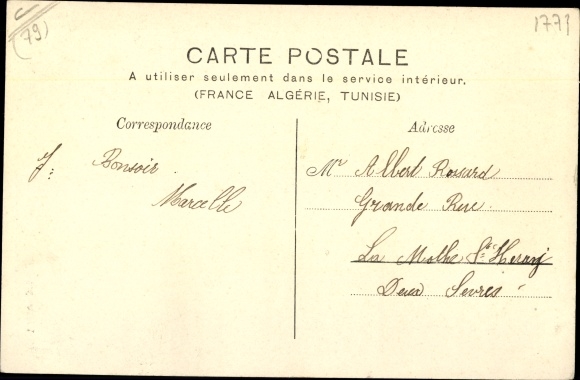 (79)
1771
CARTE POSTALE
A utiliser seulement dans le service intérieur.
(FRANCE ALGÉRIE, TUNISIE)
Correspondance
Bonsoir.
Marcelle
Adresse
Mr Albert Rossard
Grande Rue.
La Mothe St Heray
Deux Sevres